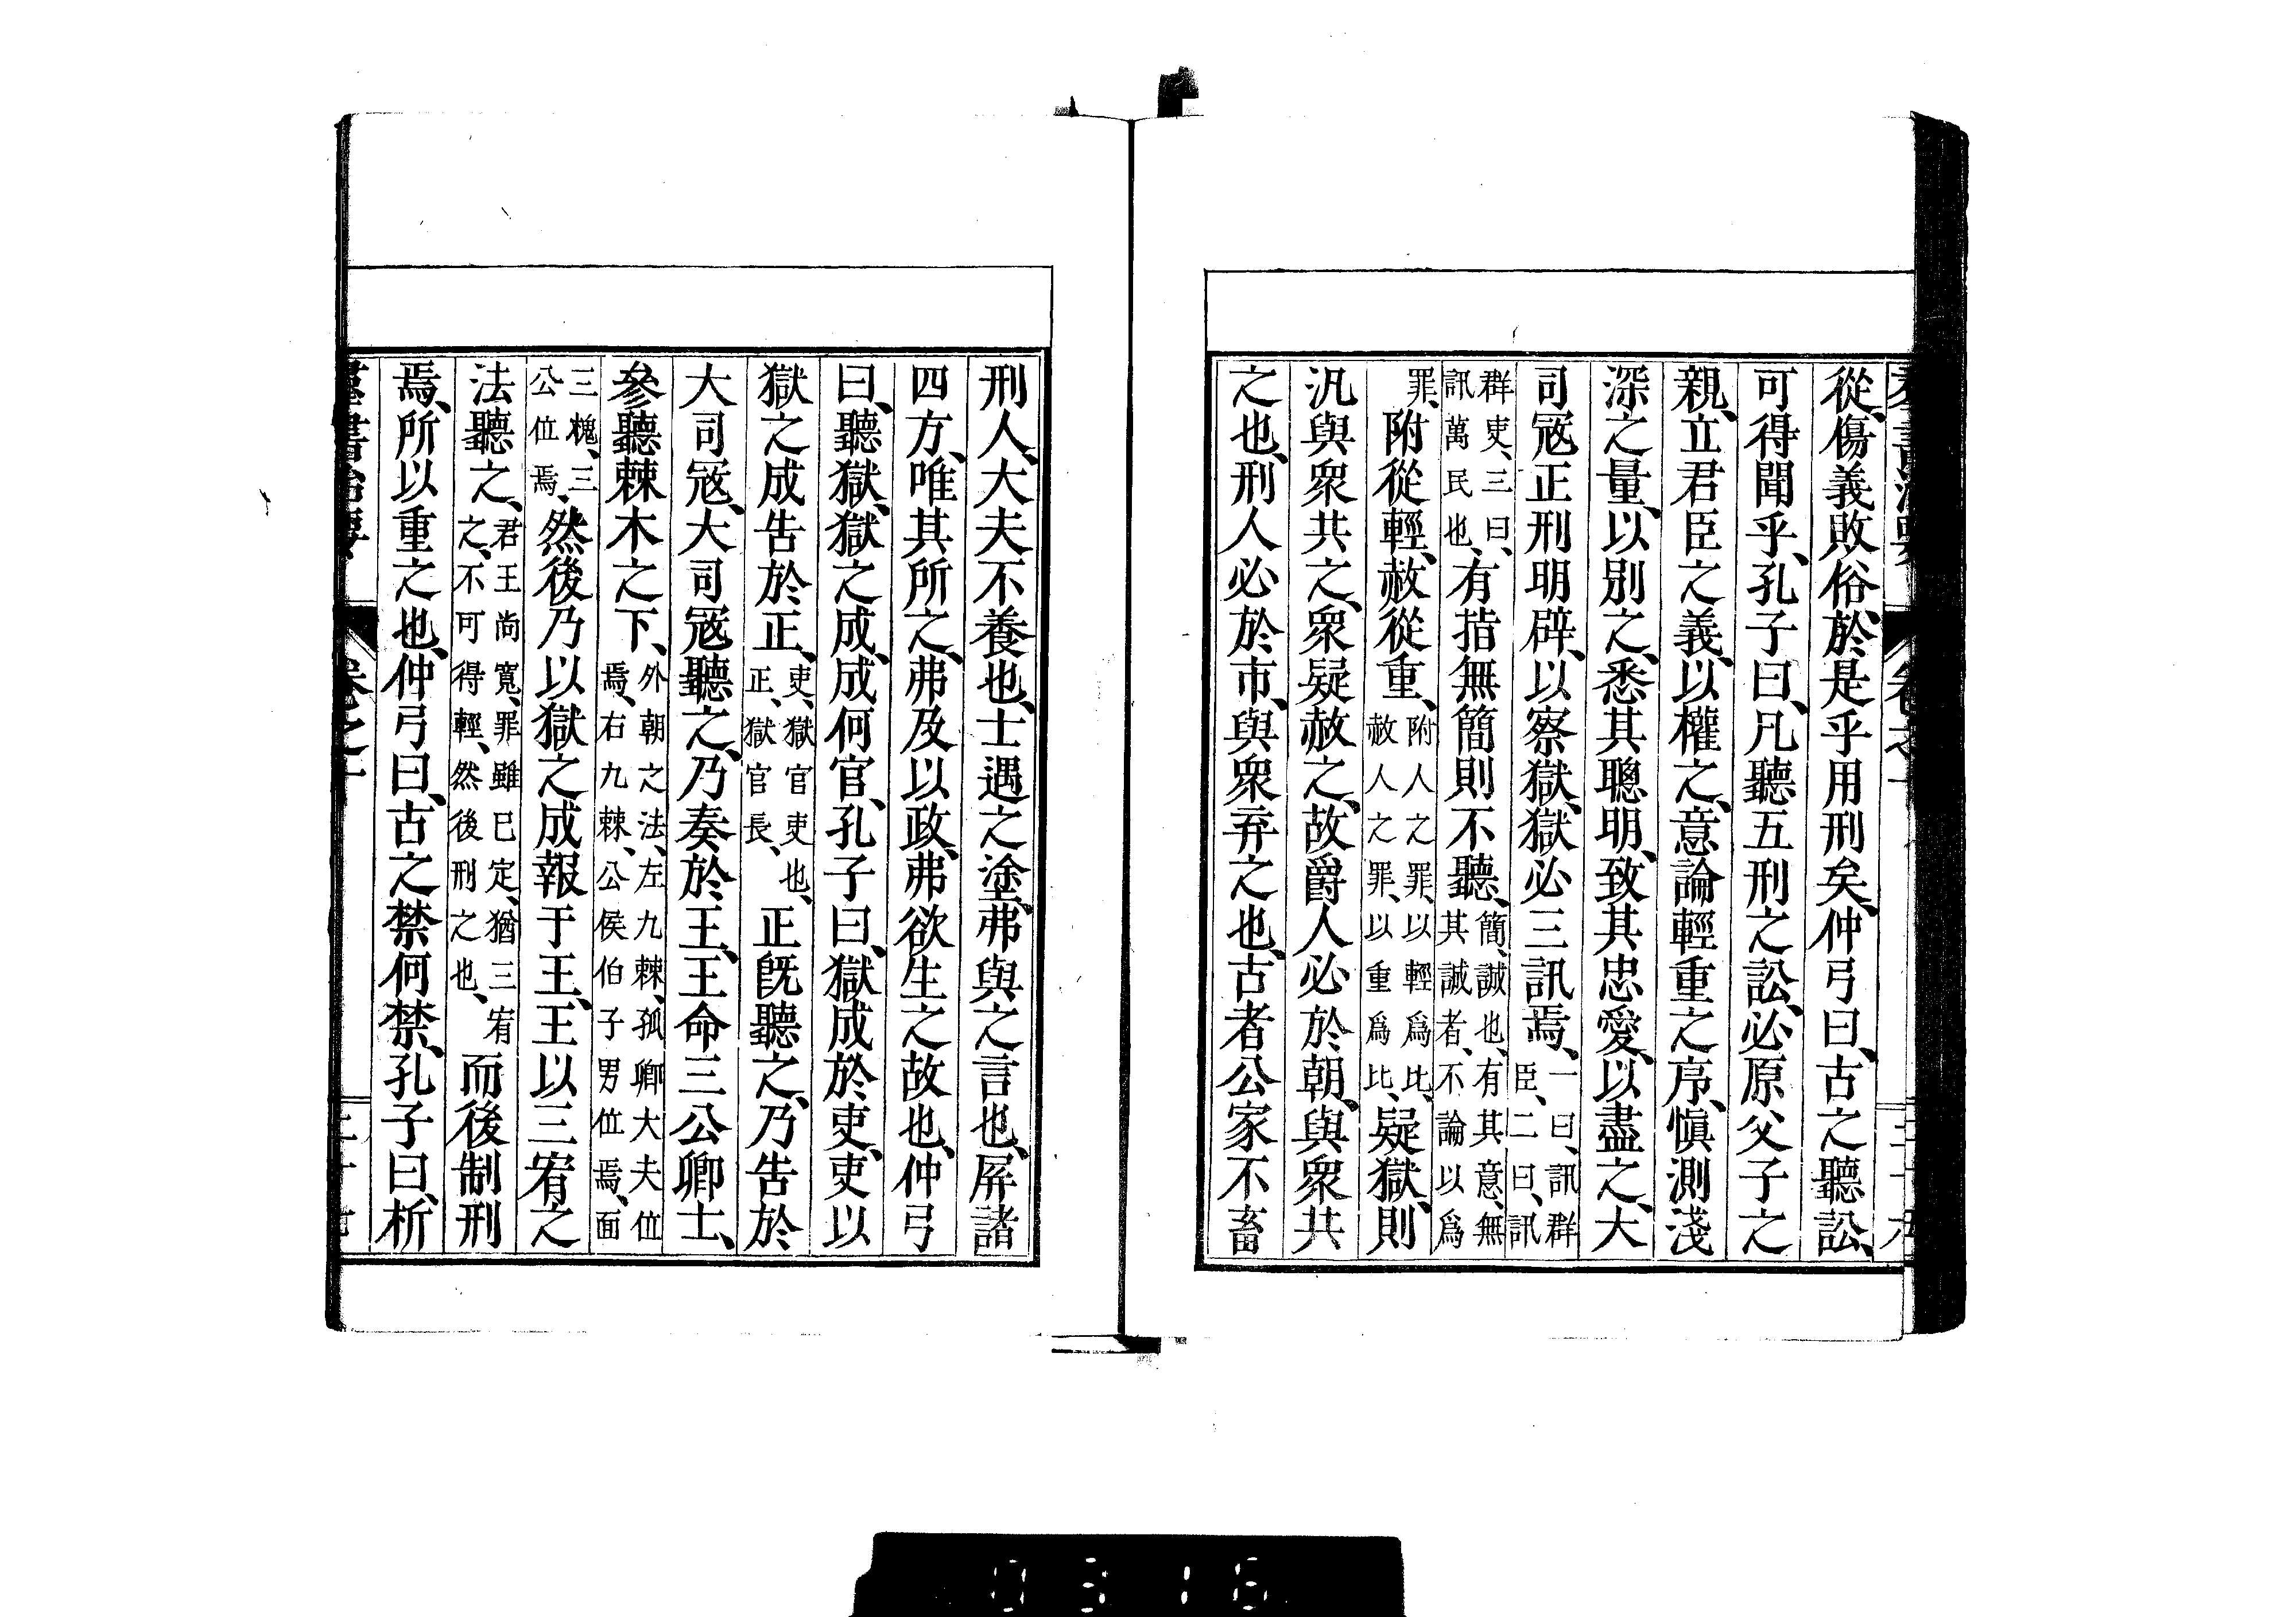 從、傷義敗俗、於是乎用刑矣、仲弓曰、古之聽訟、
可得聞乎、孔子曰、凡聽五刑之訟、必原父子之
親、立君臣之義、以權之、意論輕重之序、愼測淺
深之量、以別之、悉其聰明、致其忠愛、以盡之、大
司寇正刑明辟、以察獄、獄必三訊焉、一曰、訊群臣、二曰、訊
群吏、三曰、訊萬民也、有指無簡則不聽、簡、誠也、有其意、無其誠者、不論以爲
罪、附從輕、赦從重、附人之罪、以輕爲比、赦人之罪、以重爲比、疑獄、則
汎與衆共之、衆疑赦之、故爵人必於朝、與衆共
之也、刑人必於市、與衆弃之也、古者公家不畜
刑人、大夫不養也、士遇之塗、弗與之言也、屏諸
四方、唯其所之、弗及以政、弗欲生之故也、仲弓
曰、聽獄、獄之成、成何官、孔子曰、獄成於吏、吏以
獄之成告於正、吏、獄官吏也、正、獄官長、正既聽之、乃告於
大司寇、大司寇聽之、乃奏於王、王命三公卿士、
參聽棘木之下、外朝之法、左九棘、孤卿大夫位焉、右九棘、公侯伯子男位焉、面
三槐、三公位焉、然後乃以獄之成報于王、王以三宥之
法聽之、君王尚寬、罪雖已定、猶三宥之、不可得輕、然後刑之也、而後制刑
焉、所以重之也、仲弓曰、古之禁何禁、孔子曰、析
群書治要
卷之十
0316